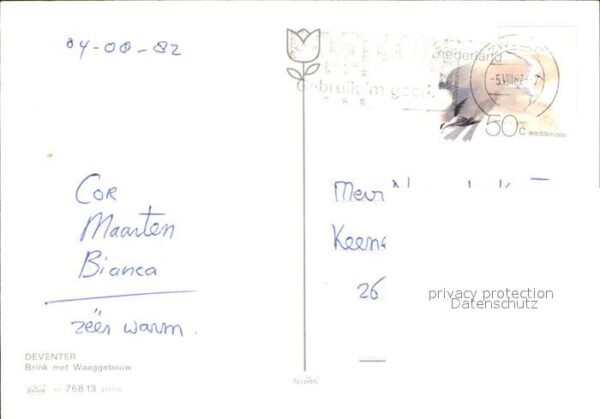 04-08-82
nederland
-5.VIII.82
gebruik 'm goed.
50c waddenzee
Cor
Maarten
Bianca
zéér warm.
Mevr
Keene
26
privacy protection
Datenschutz
DEVENTER
Brink met Waaggebouw
76813